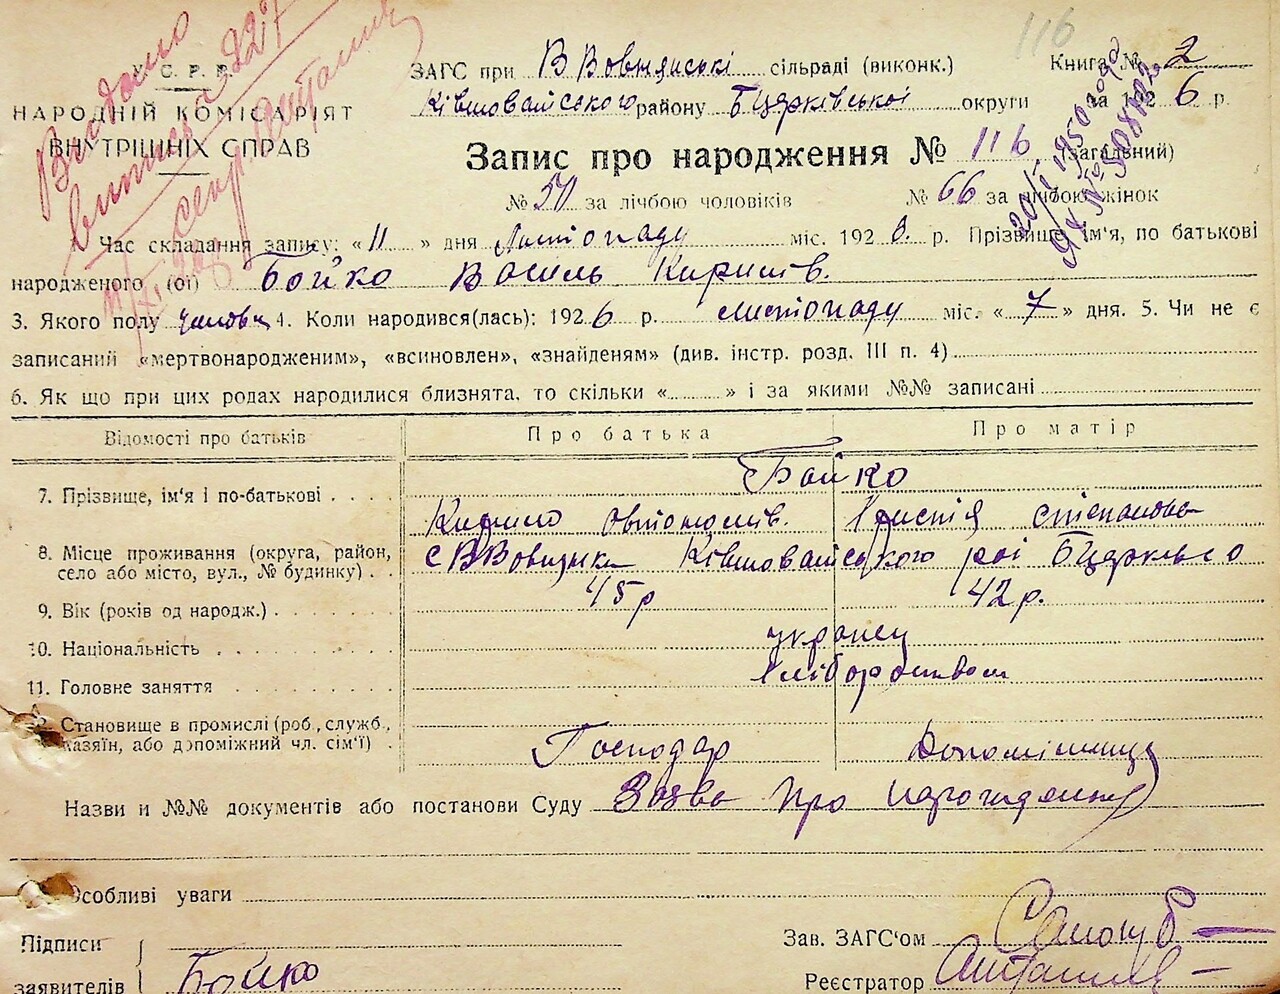 116
Видано
випись 227
У. С. Р. Р.
НАРОДНІЙ КОМІСАРІЯТ
ВНУТРІШНІХ СПРАВ
ЗАГС при В Вовнянські сільраді (виконк.) Книга № 2
району БЦерківської округи за 1926 р.
Запис про народження № 116 (загальний)
№ 50 за лічбою чоловіків № 66 за лічбою жінок
Час складання запису: « 11 » дня Листопаду міс. 192 р. Прізвище ім'я, по батькові
народженого (ої) Бойко Василь Кирилів.
3. Якого полу 4. Коли народився(лась): 1926 р. листопаду міс. « 7 » дня. 5. Чи не є
записаний «мертвонародженим», «всиновлен», «знайденям» (див. інстр. розд. III п. 4)
6. Як що при цих родах народилися близнята, то скільки « » і за якими №№ записані
Відомості про батьків Про батька Про матір
7. Прізвище, ім'я і по-батькові Бойко
Кирило Автономів. Христія Степанова
8. Місце проживання (округа, район, село або місто, вул., № будинку) с ВВовнянка
9. Вік (років од народж.) 45 р 42 р.
10. Національність українці
11. Головне заняття хліборобством
12. Становище в промислі (роб., служб., хазяїн, або допоміжний чл. сім'ї) Господар допомішниця
Назви и №№ документів або постанови Суду Заява про народження
Особливі уваги
Підписи
заявителів Бойко
Зав. ЗАГС'ом
Реєстратор